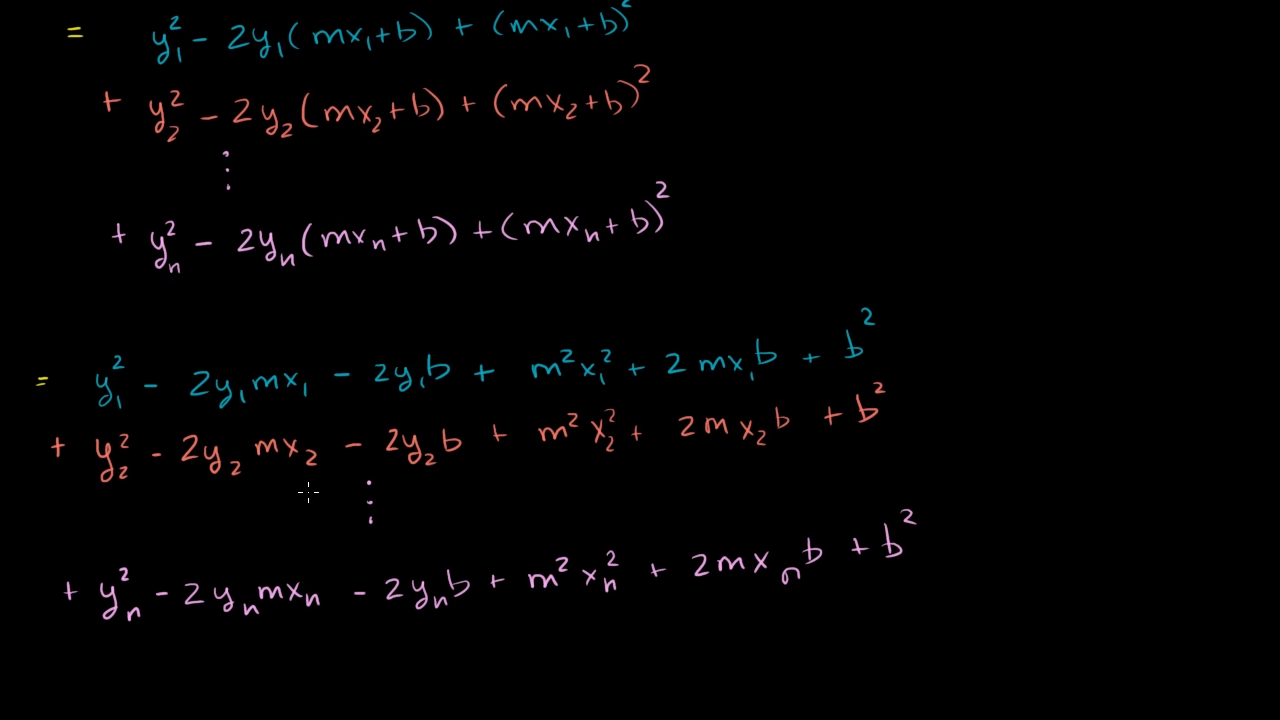 = y₁² − 2y₁(mx₁+b) + (mx₁+b)²
+ y₂² − 2y₂(mx₂+b) + (mx₂+b)²
⋮
+ yₙ² − 2yₙ(mxₙ+b) + (mxₙ+b)²
= y₁² − 2y₁mx₁ − 2y₁b + m²x₁² + 2mx₁b + b²
+ y₂² − 2y₂mx₂ − 2y₂b + m²x₂² + 2mx₂b + b²
⋮
+ yₙ² − 2yₙmxₙ − 2yₙb + m²xₙ² + 2mxₙb + b²